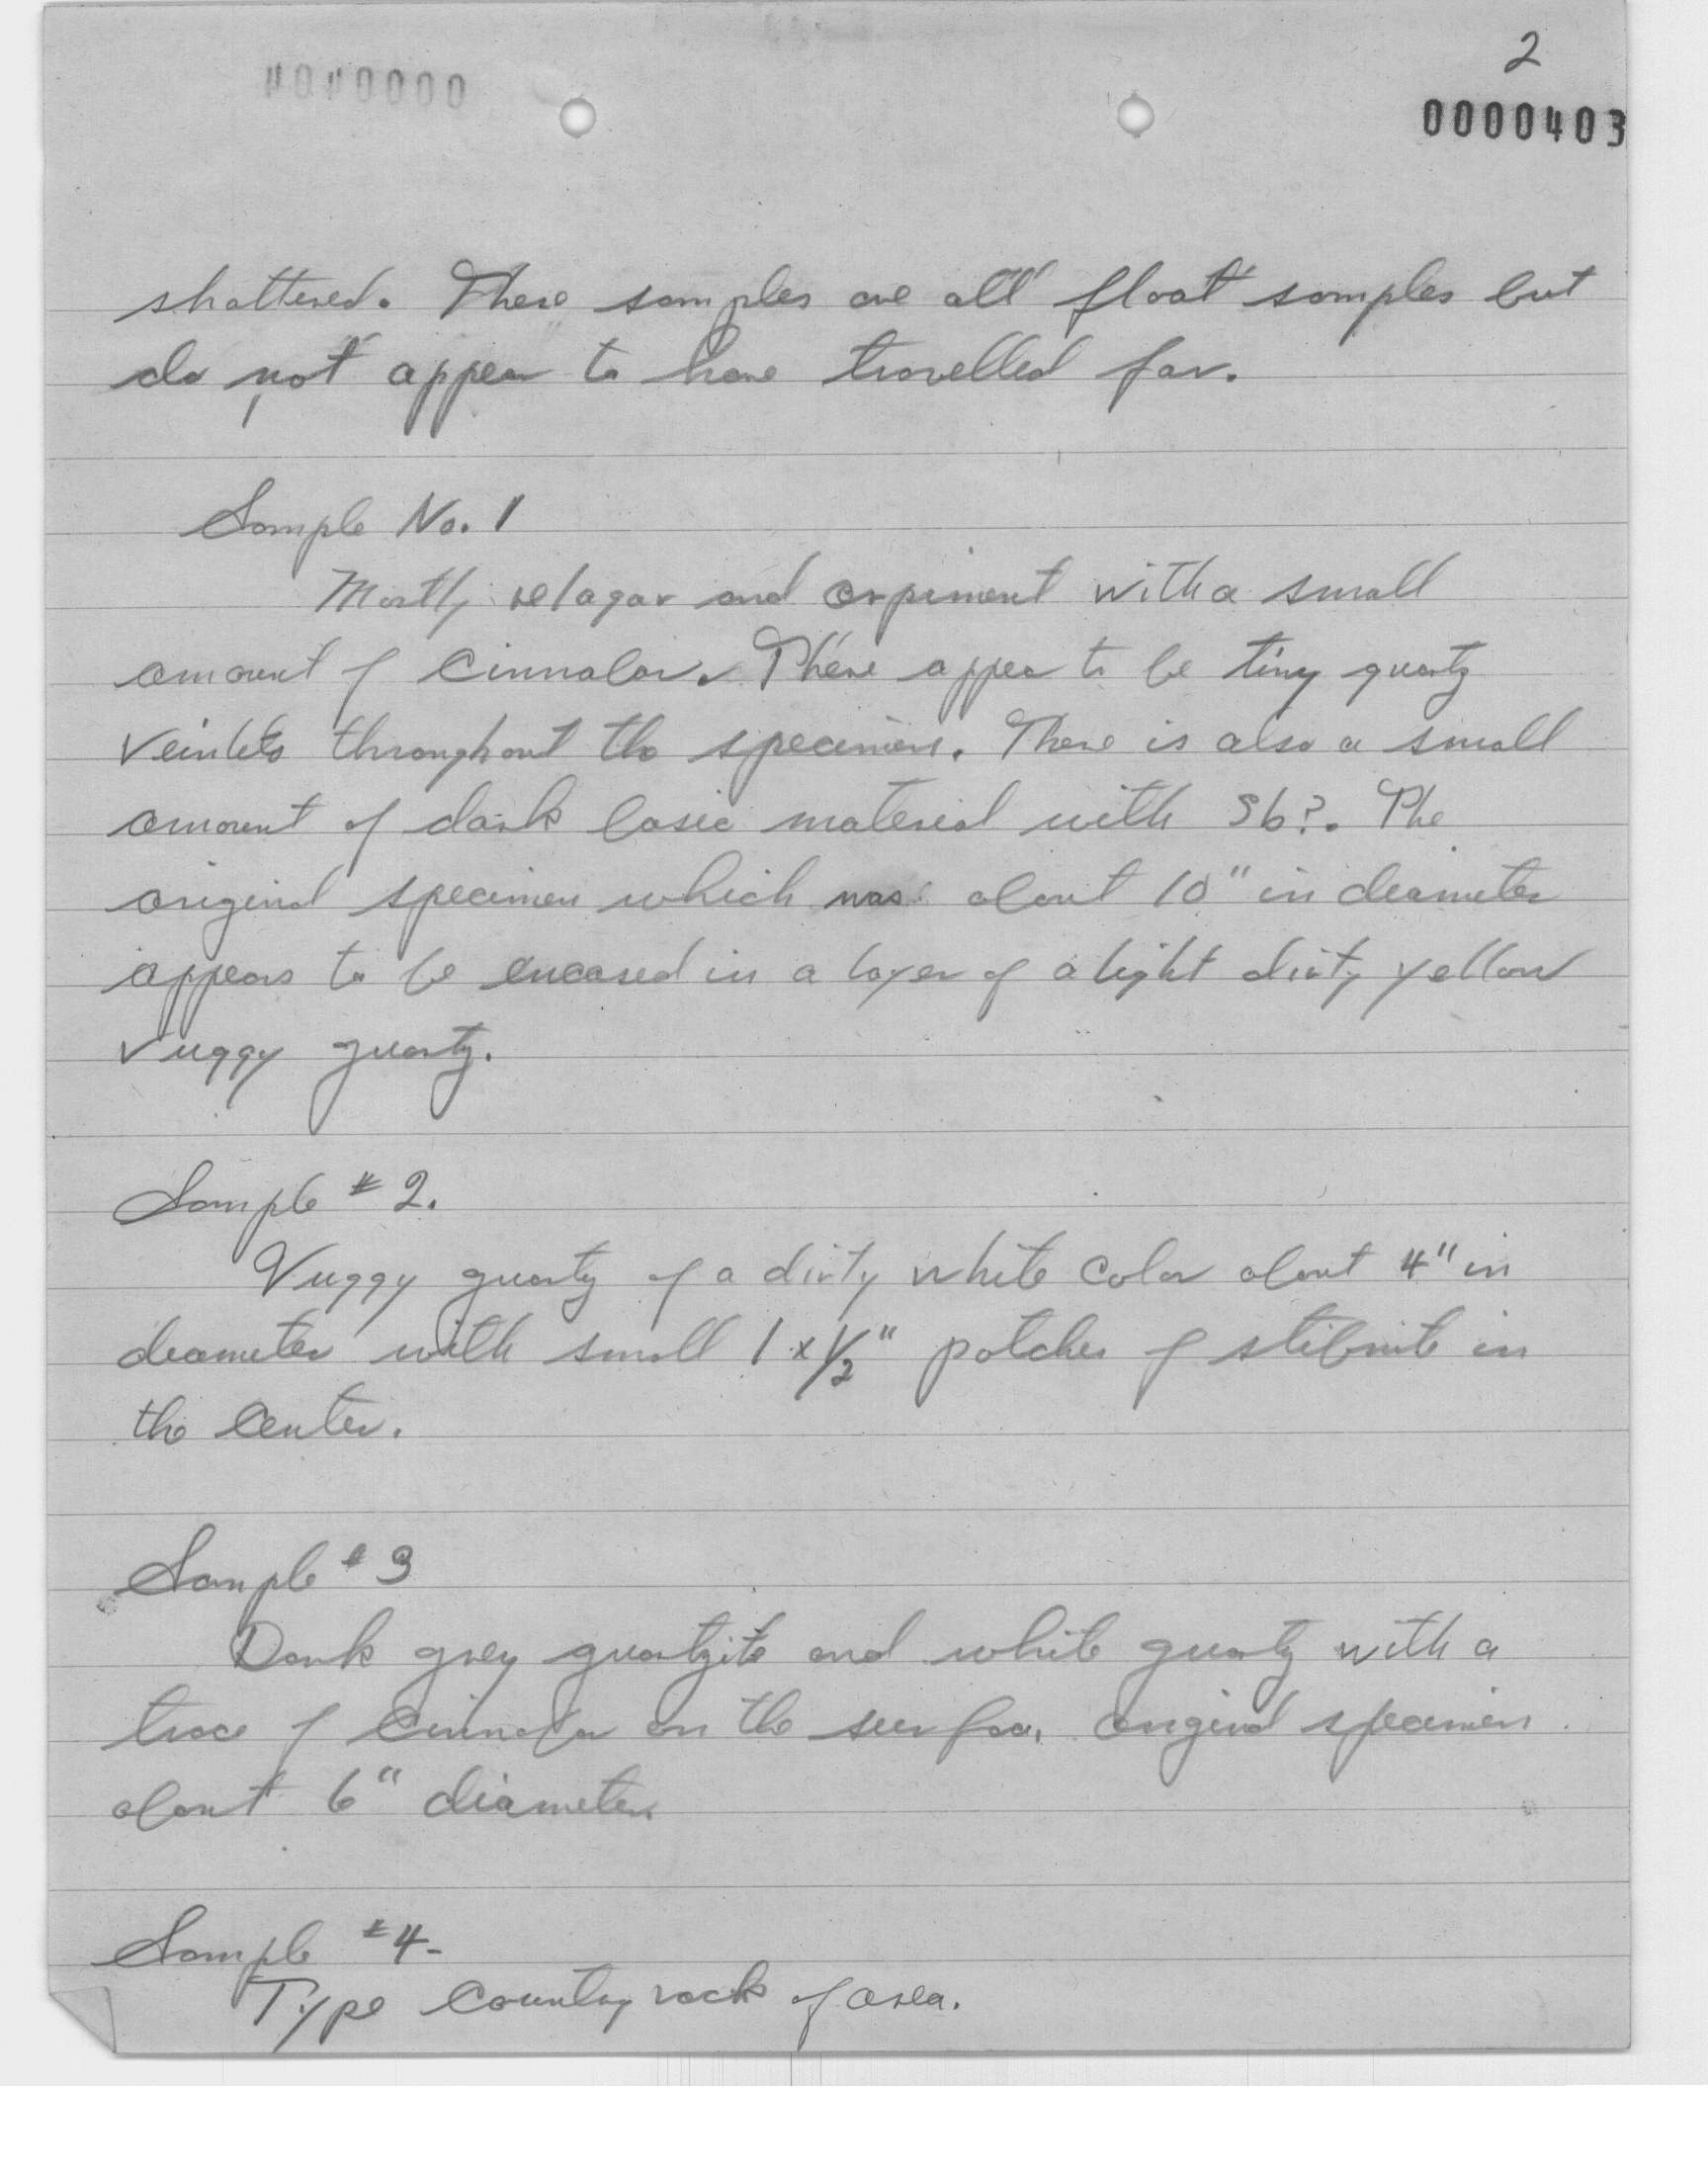 2
0000000
0000403
shattered. These samples are all float samples but
do not appear to have travelled far.
Sample No. 1
Mostly relagar and orpiment with a small
amount of cinnabar. There appear to be tiny quartz
veinlets throughout the specimen. There is also a small
amount of dark basic material with Sb?. The
original specimen which was about 10" in diameter
appears to be encased in a layer of a light dirty yellow
vuggy quartz.
Sample # 2.
Vuggy quartz of a dirty white color about 4" in
diameter with small 1 x 1/2" patches of stibnite in
the center.
Sample # 3
Dark grey quartzite and white quartz with a
trace of cinnabar on the surface. original specimen
about 6" diameter.
Sample #4-
Type country rock of area.